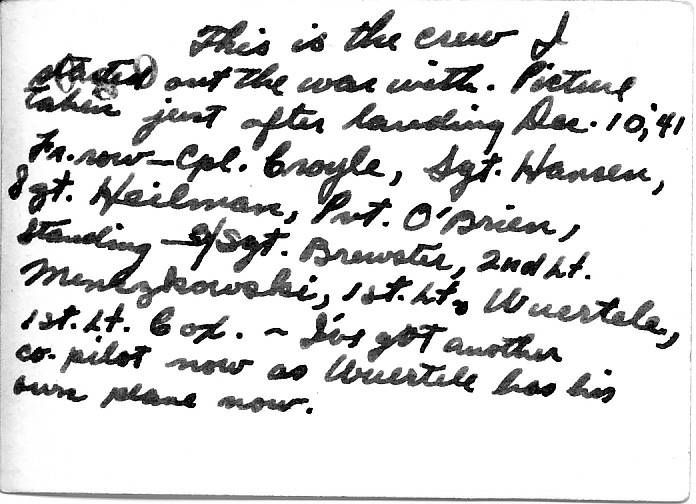 This is the crew I
started out the war with. Picture
taken just after landing Dec. 10, '41
Fr. row — Cpl. Croyle, Sgt. Hansen,
Sgt. Heilman, Pvt. O'Brien,
Standing — S/Sgt. Brewster, 2nd Lt.
Menezkowski, 1st. Lt. Wuertele,
1st. Lt. Cox. ~ I've got another
co-pilot now as Wuertele has his
own plane now.